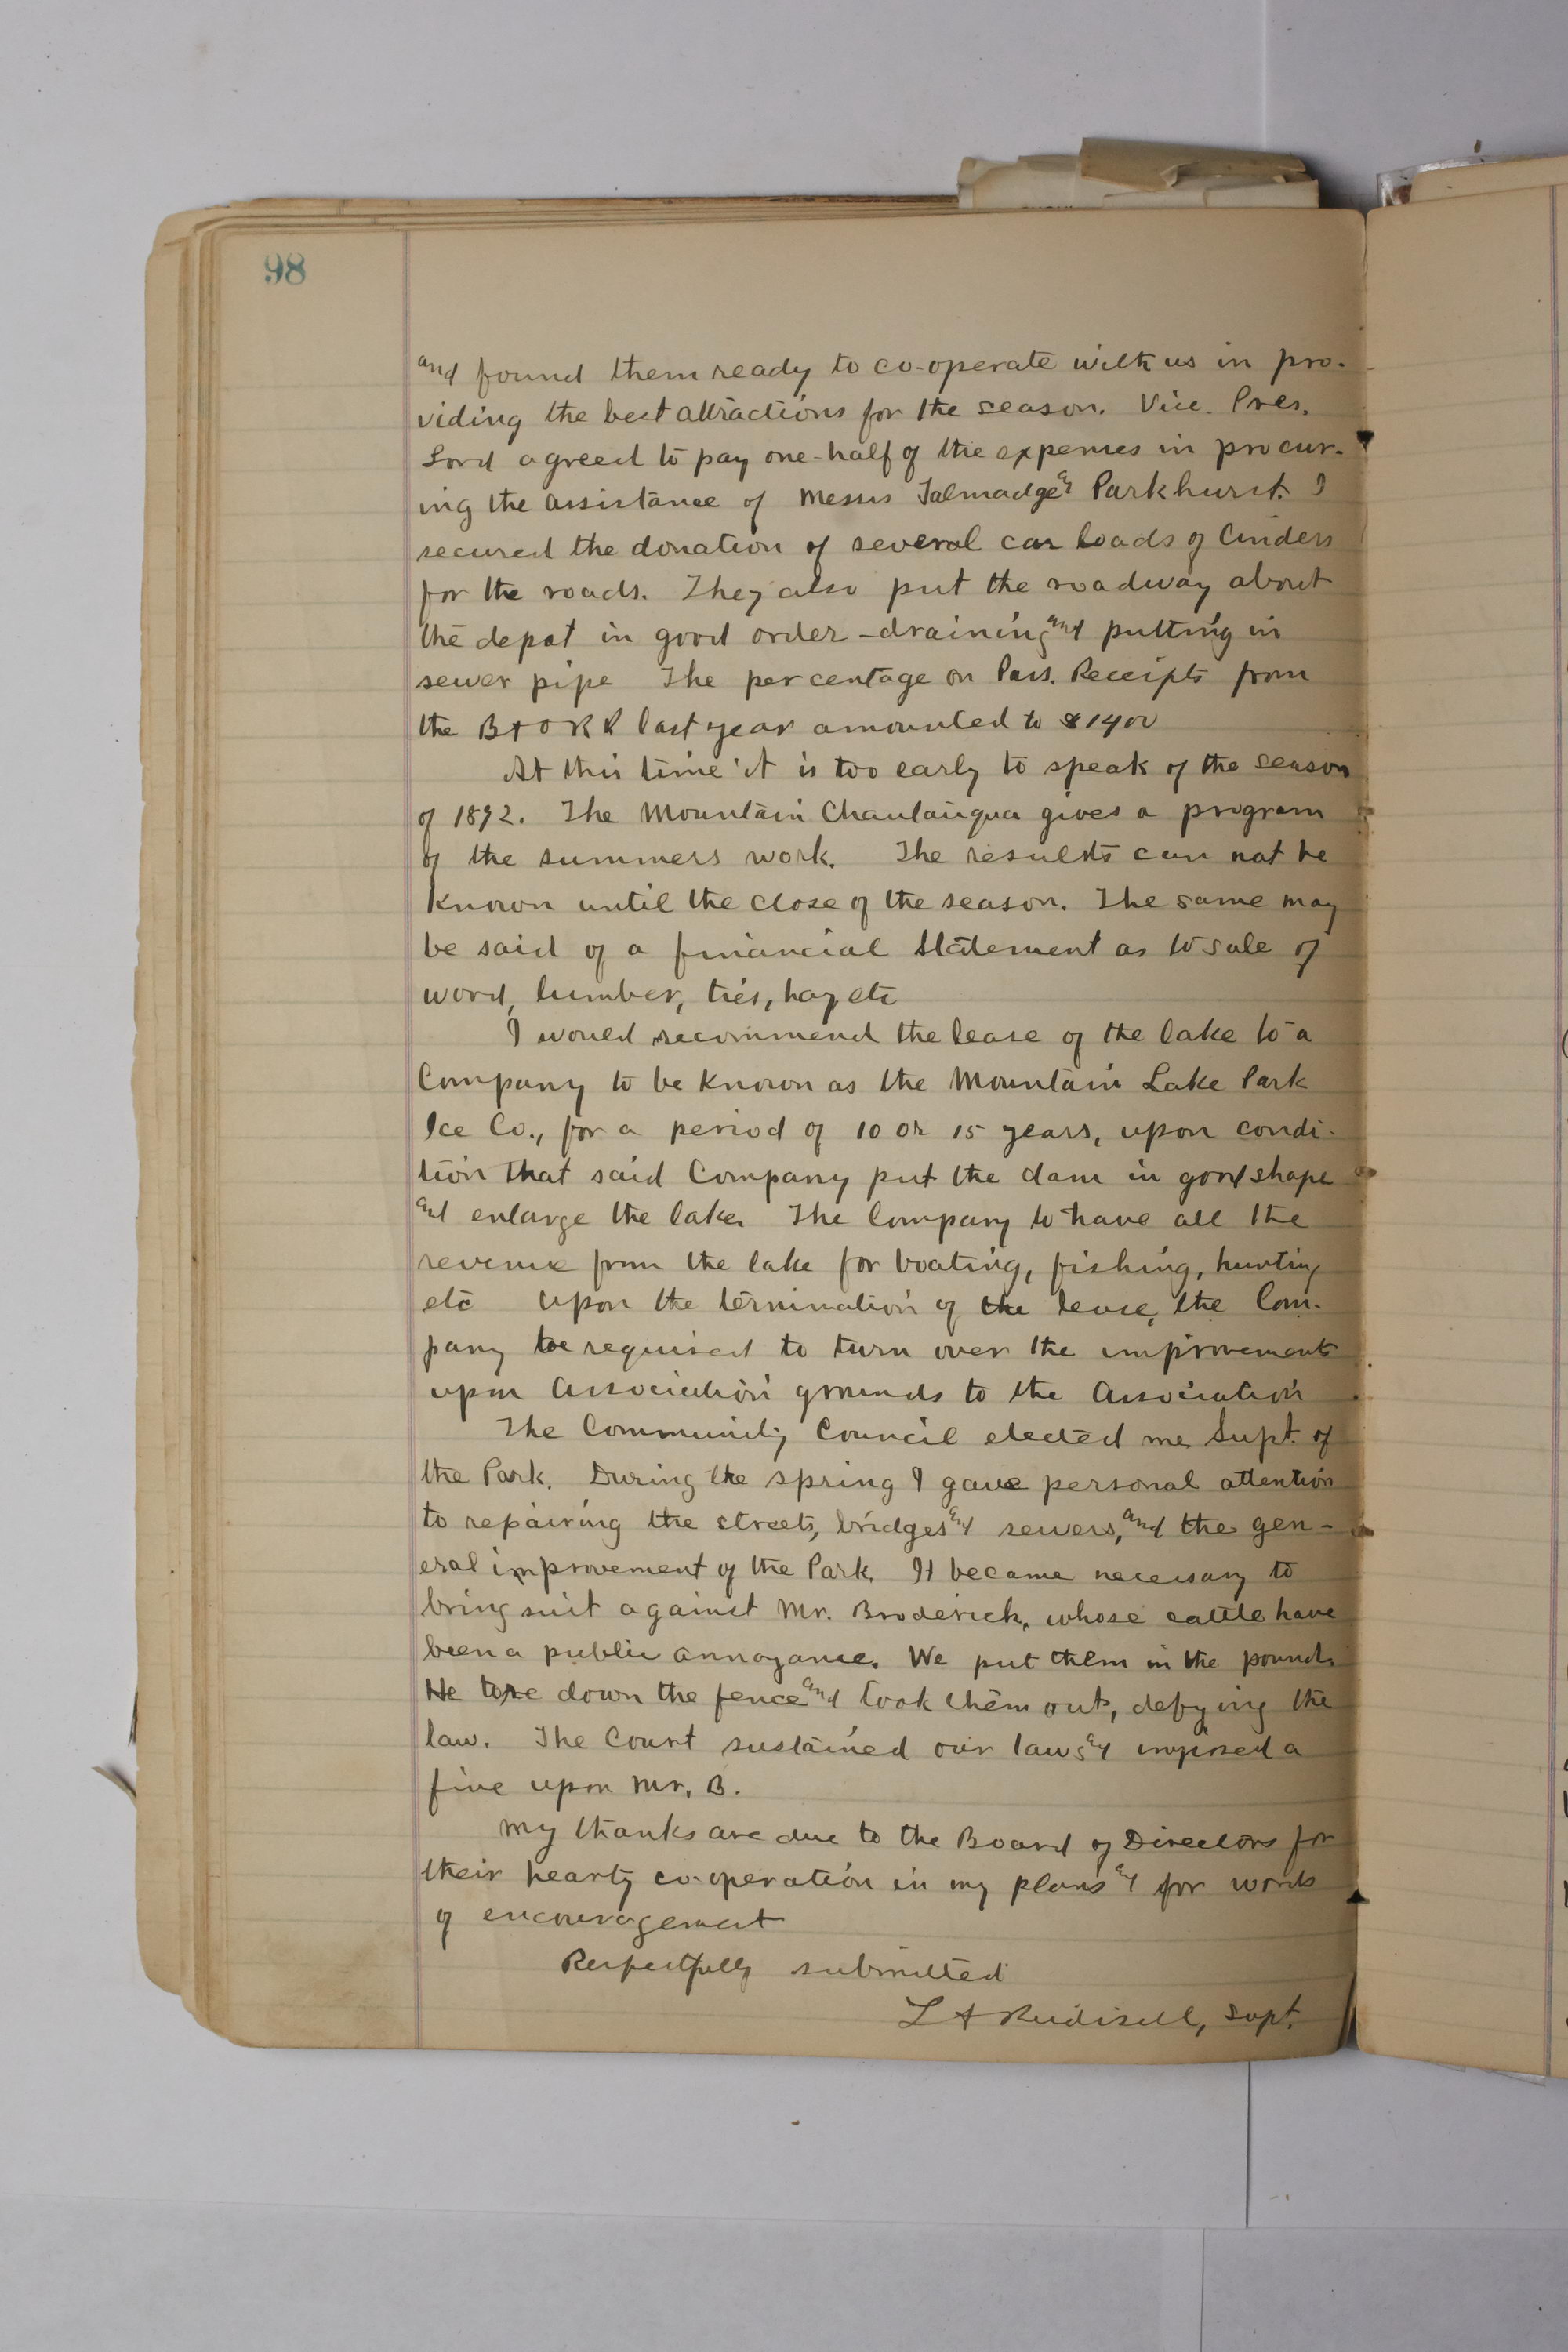 98
and found them ready to co-operate with us in pro-
viding the best attractions for the season. Vice. Pres.
Lord agreed to pay one-half of the expenses in procur-
ing the assistance of Messrs Talmadge and Parkhurst. I
secured the donation of several car loads of Cinders
for the roads. They also put the roadway about
the depot in good order - draining and putting in
sewer pipe The percentage on Pass. Receipts from
the B + O R R last year amounted to $1400
At this time it is too early to speak of the season
of 1892. The Mountain Chautauqua gives a program
of the summers work. The results can not be
known until the close of the season. The same may
be said of a financial statement as to sale of
wood, lumber, ties, hay etc
I would recommend the lease of the lake to a
Company to be known as the Mountain Lake Park
Ice Co., for a period of 10 or 15 years, upon condi-
tion that said Company put the dam in good shape
and enlarge the lake. The Company to have all the
revenue from the lake for boating, fishing, hunting
etc Upon the termination of the lease, the Com-
pany be required to turn over the improvements
upon Association grounds to the Association
The Community Council elected me Supt. of
the Park. During the spring I gave personal attention
to repairing the streets, bridges and sewers, and the gen-
eral improvement of the Park. It became necessary to
bring suit against Mr. Broderick, whose cattle have
been a public annoyance. We put them in the pound.
He tore down the fence and took them out, defying the
law. The Court sustained our laws and imposed a
fine upon Mr. B.
My thanks are due to the Board of Directors for
their hearty co-operation in my plans and for words
of encouragement
Respectfully submitted
L A Rudisill, Supt.